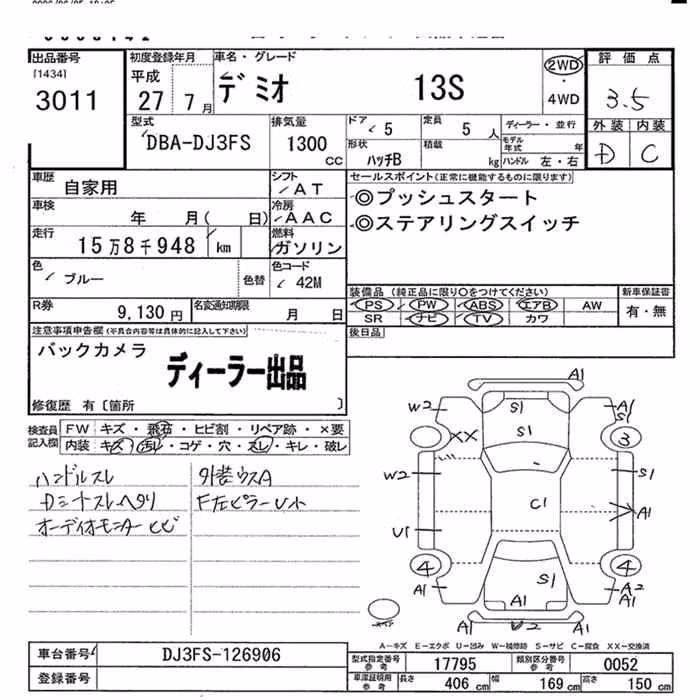 出品番号
[1434]
3011
初度登録年月
平成
27 7月
車名・グレード
デミオ 13S
2WD
・
4WD
評価点
3.5
外装 内装
D C
型式
DBA-DJ3FS
排気量
1300
CC
ドア
5
形状
ハッチB
定員
5 人
積載
kg
ディーラー・並行
モデル年式 年
ハンドル 左・右
車歴
自家用
シフト
AT
車検
年 月( 日)
冷房
AAC
走行
15万8千948 km
燃料
ガソリン
色
ブルー
色替
色コード
42M
R券
9,130円
名変通知期限
月 日
セールスポイント(正常に機能するものに限ります)
◎プッシュスタート
◎ステアリングスイッチ
装備品(純正品に限り○をつけてください)
PS PW ABS エアB AW
SR ナビ TV カワ
新車保証書
有・無
後日品
注意事項申告欄(不具合内容等は具体的に記入して下さい)
バックカメラ
ディーラー出品
修復歴 有〔箇所 〕
検査員
記入欄
FW キズ・飛石・ヒビ割・リペア跡・×要
内装 キズ・汚レ・コゲ・穴・スレ・キレ・破レ
ハンドルスレ
Dシートスレヘタリ
オーディオモニターヒビ
外装ウスA
F左ピラーU小
A1
W2 S1 A1
S1
XX S1 3
W2 S1
C1 A1
U1
4 4
A1 S1 A2
A1
A1
A1 A1
A-キズ E-エクボ U-凹み W-補修跡 S-サビ C-腐食 XX-交換済
車台番号
DJ3FS-126906
登録番号
型式指定番号
参考
17795
類別区分番号
参考
0052
車庫証明用
参考
長さ 406 cm 幅 169 cm 高さ 150 cm